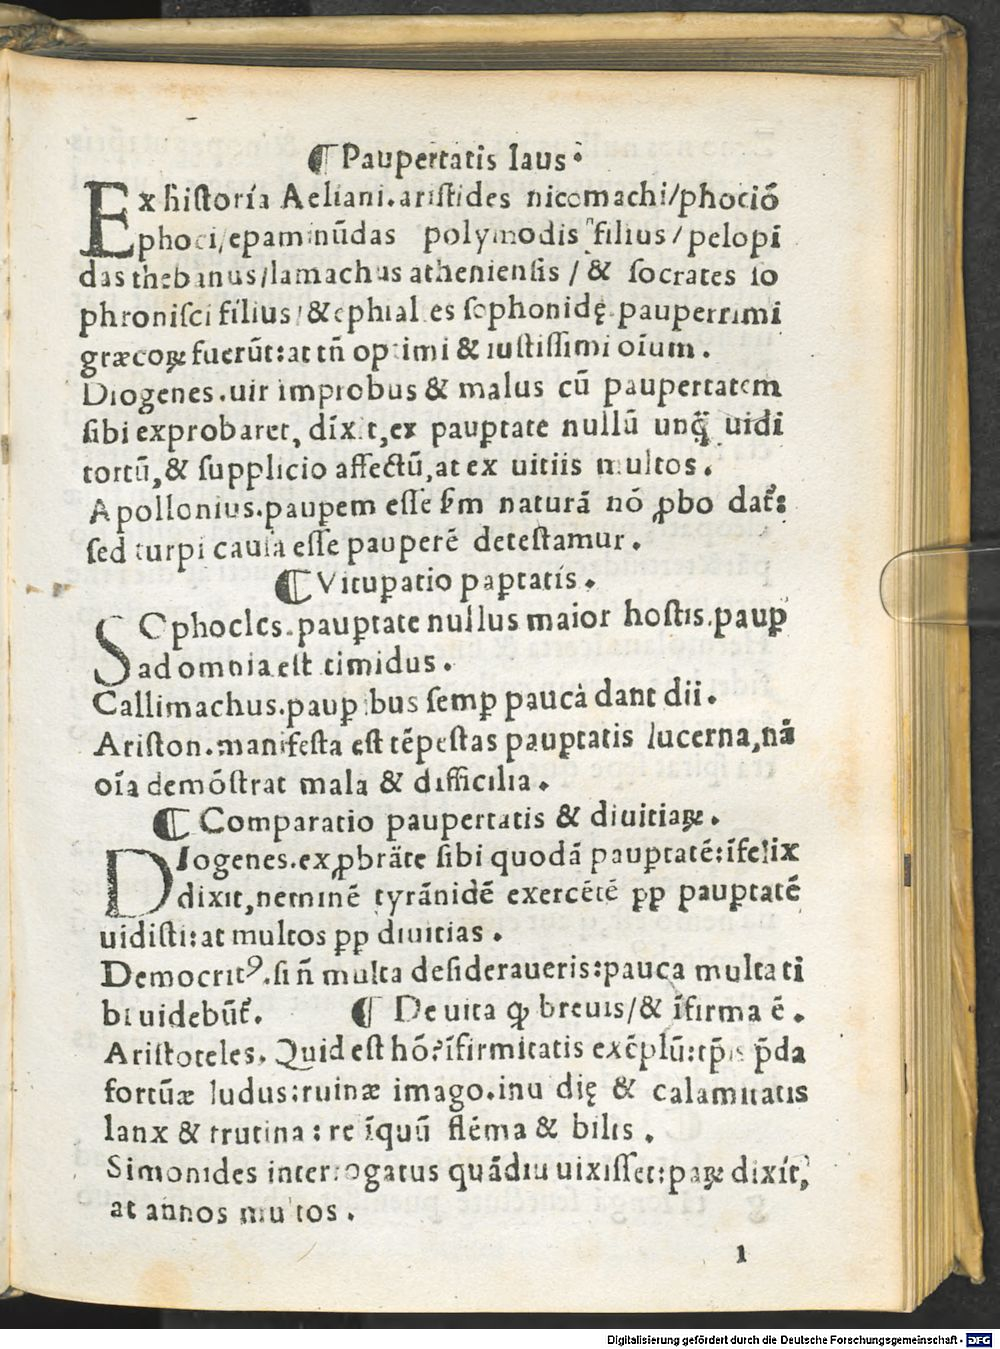 ¶ Paupertatis laus.
Ex historía Aeliani.aristides nicomachi/phociō
phoci/epaminūdas polymodis filius/pelopi
das thebanus/lamachus atheniensis/& socrates so
phronisci filius/& ephialtes sophonidę pauperrimi
græcoꝝ fuerūt:at tñ optimi & iustissimi oīum.
Diogenes.uir improbus & malus cū paupertatem
sibi exprobaret, dīxit,ex paup̱tate nullū unq̄ uidi
tortū,& supplicio affectū,at ex uitiis multos.
Apollonius.paup̱em esse ẜm naturā nō ꝓbo dat᷑:
sed turpi causa esse pauperē detestamur.
¶ Vitup̱atio pap̱tatis.
SOphocles.paup̱tate nullus maior hostis.paup̱
ad omnia est timidus.
Callimachus.paup̱ibus semp̱ paucà dant dii.
Ariston.manifesta est tēpestas paup̱tatis lucerna,nā
oīa demōstrat mala & difficilia.
¶ Comparatio paupertatis & diuitiaꝝ.
DIogenes.exꝓbrāte sibi quodā paup̱tatē:īfelix
dixit,neminē tyrānidē exercētē pp̱ paup̱tatē
uidisti:at multos pp̱ diuitias.
Democritꝰ.si ñ multa desideraueris:pauca multa ti
bi uidebūt᷑. ¶ De uita ꝙ breuis/& īfirma ē.
Aristoteles. Quid est hō?īfirmitatis exēplū:tp̄is p̄da
fortūæ ludus:ruinæ imago.inuidię & calamitatis
lanx & trutina:re īquū flēma & bilis.
Simonides interrogatus quādiu uixisset:paꝝ dixít,
at annos multos.
l
Digitalisierung gefördert durch die Deutsche Forschungsgemeinschaft - DFG